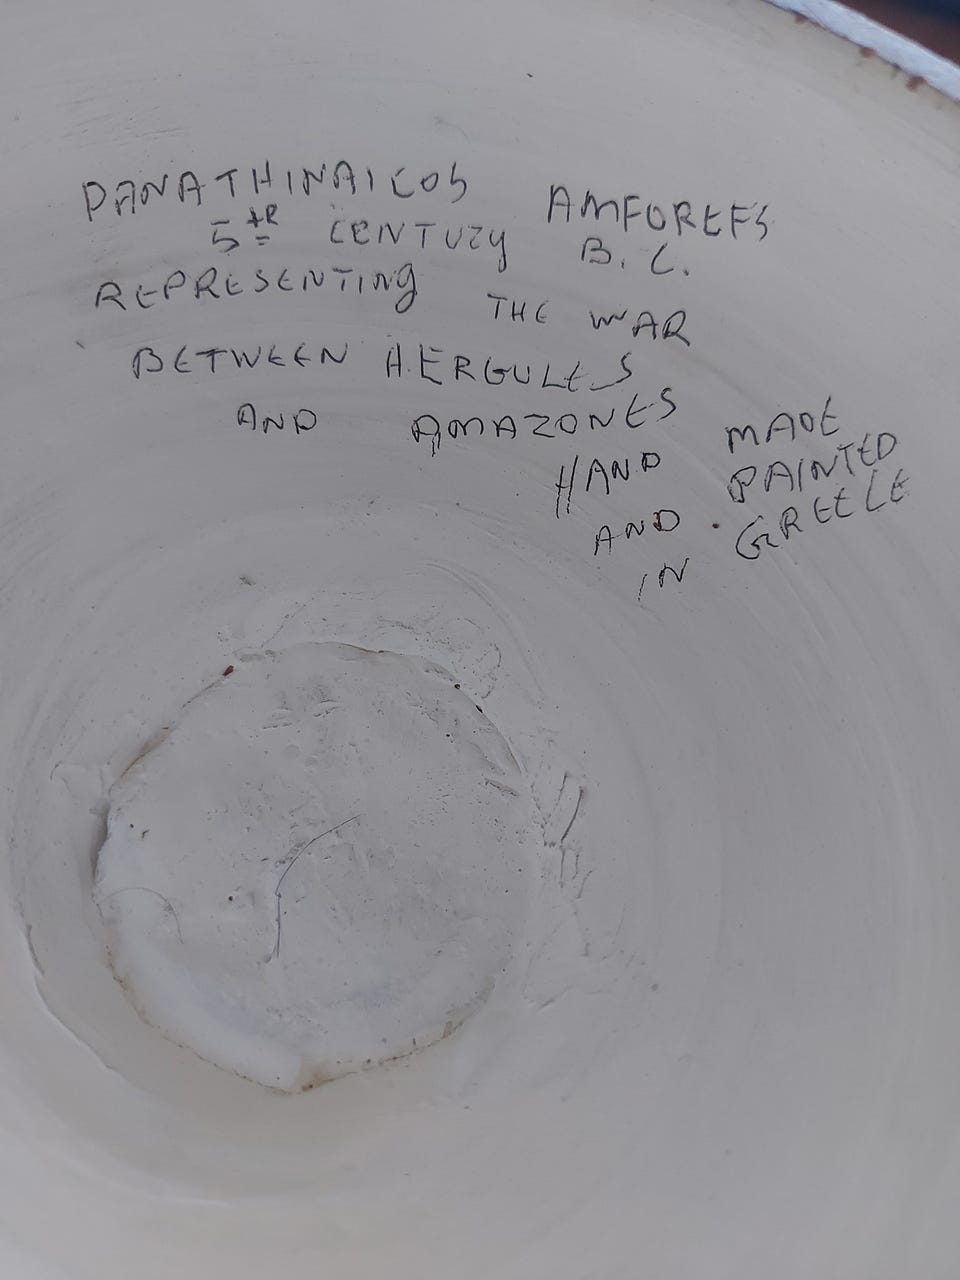 PANATHINAICOS AMFOREFS
5TH CENTURY B.C.
REPRESENTING THE WAR
BETWEEN HERGULES
AND AMAZONES
HAND MADE
AND PAINTED
IN GREECE